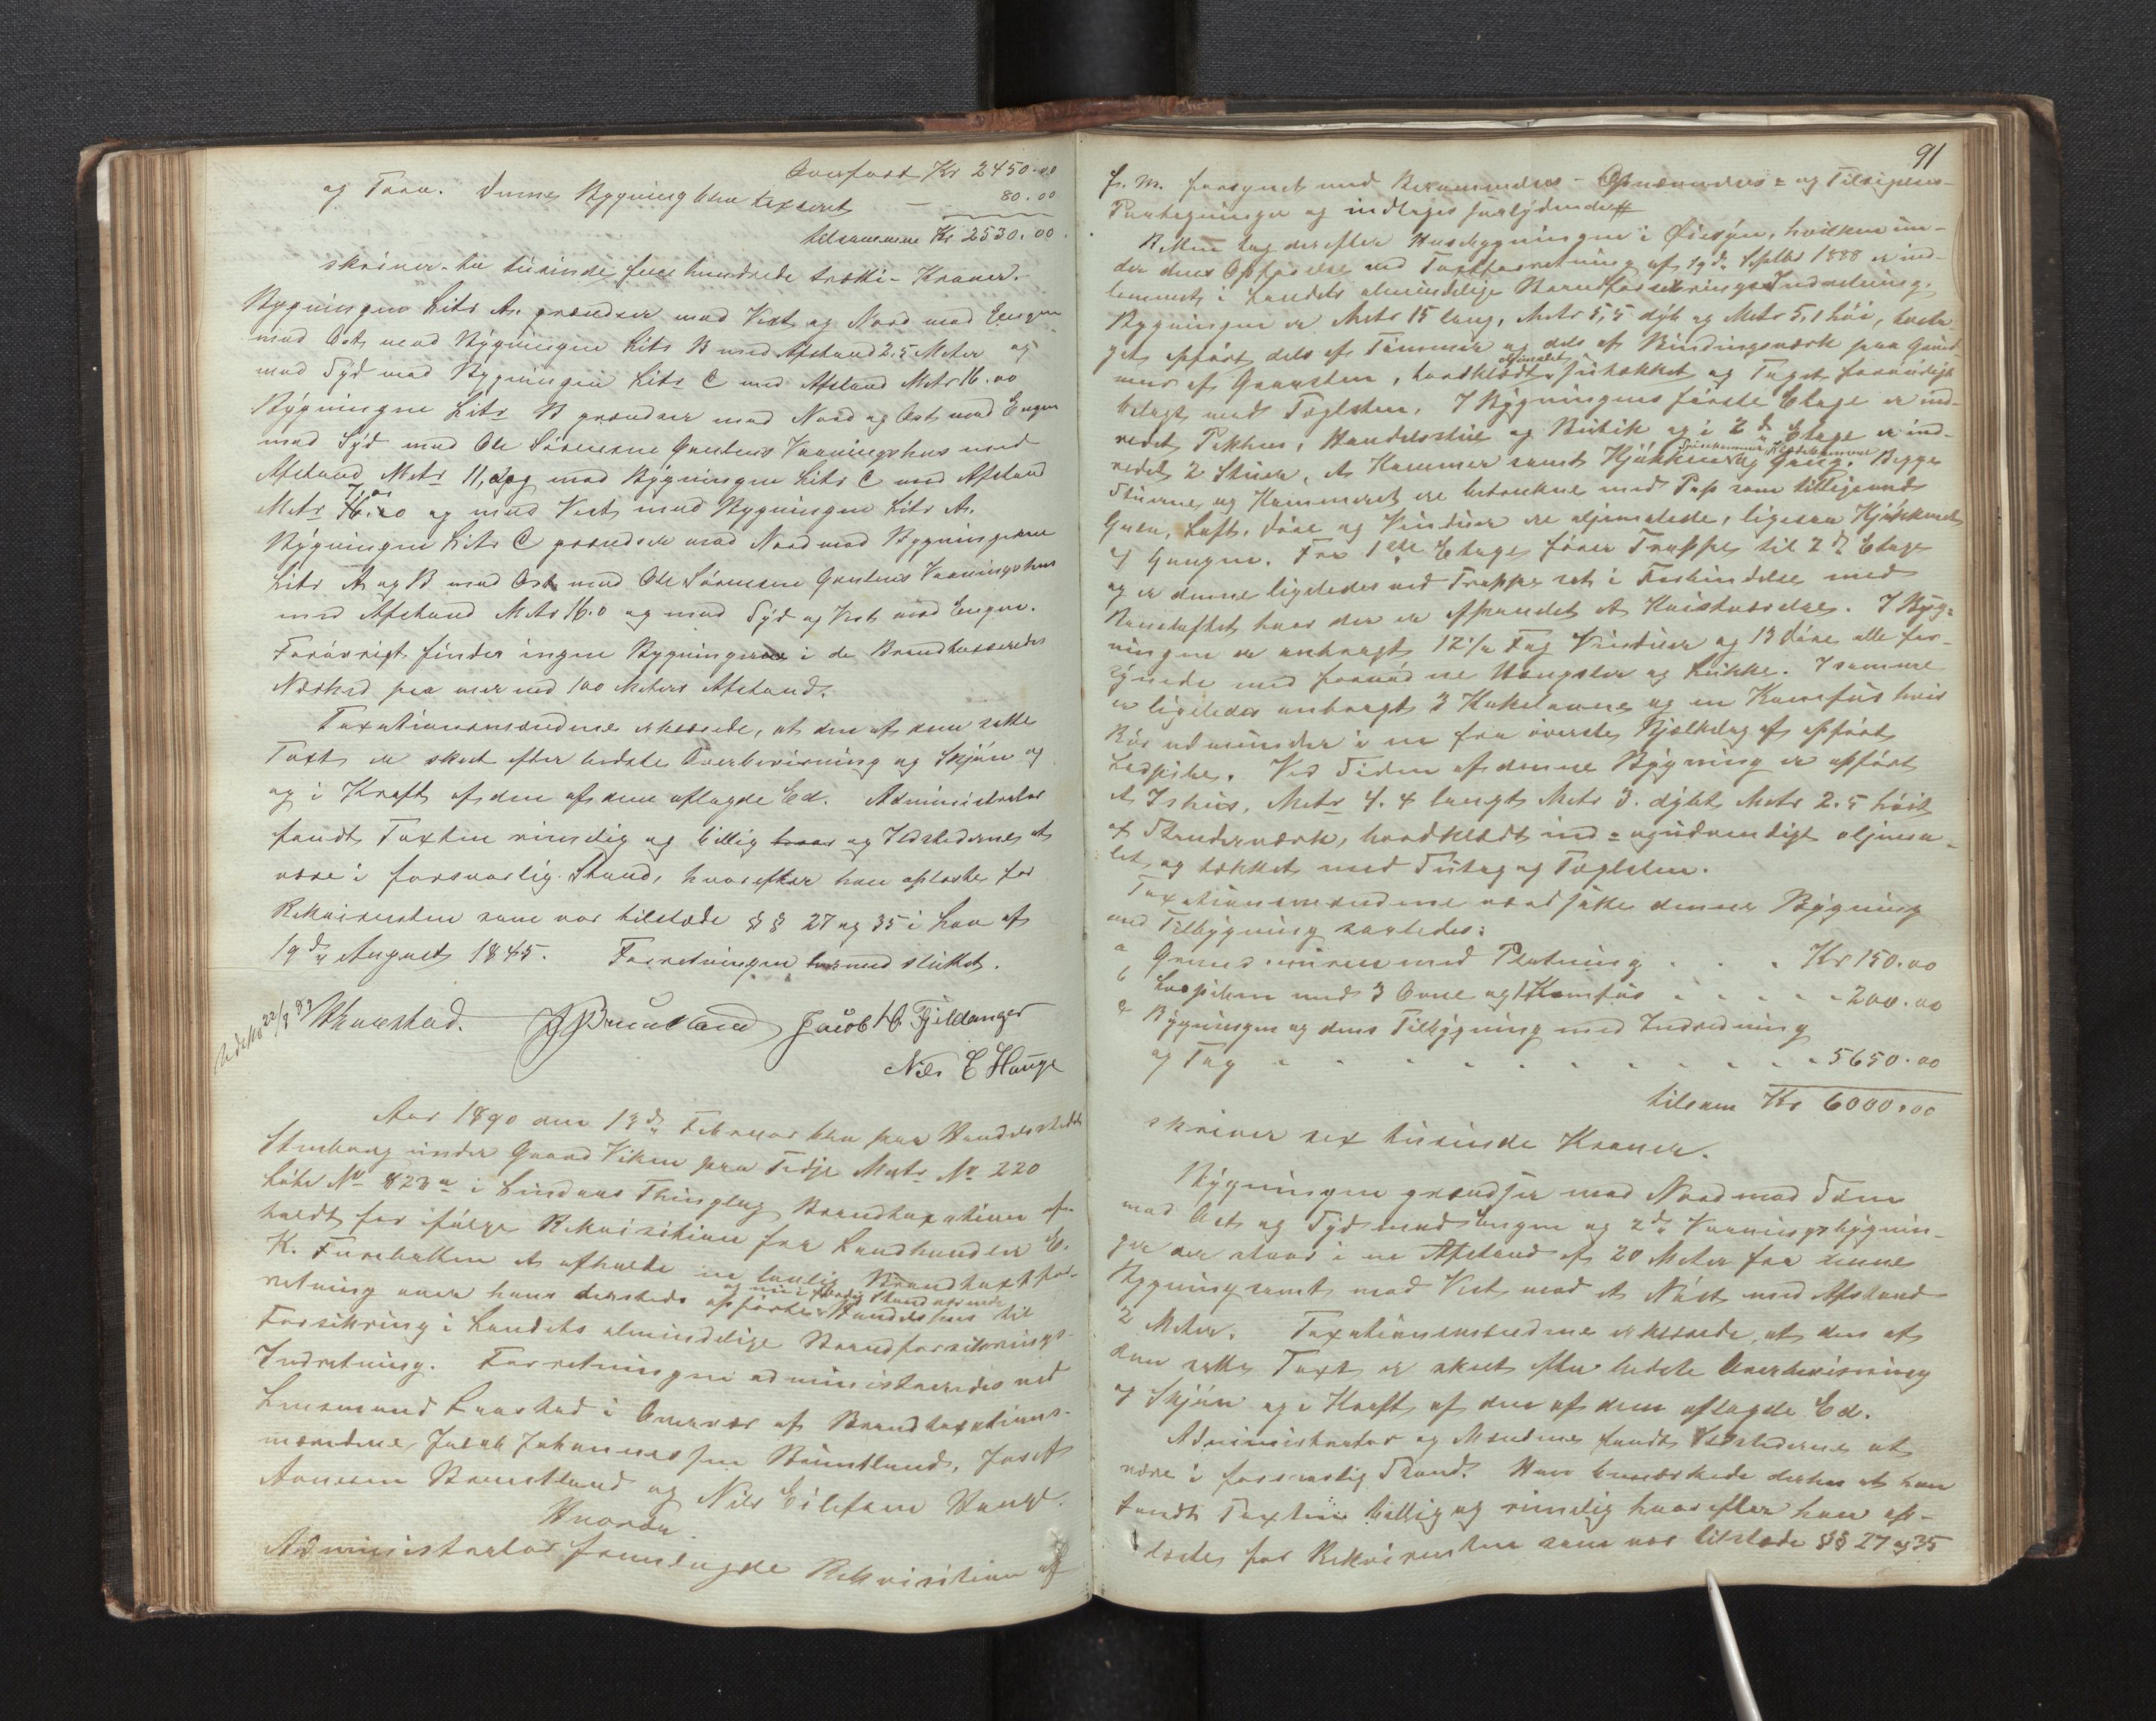 Overført Kr 2450.00
og Tarv. Denne Bygning blev taxeret — 80.00
tilsammen Kr 2530.00.
skriver to tusinde fem hundrede tretti Kroner.
Bygningen Litr A. grændser mod Vest og Nord mod Engen
mod Ost mod Bygningen Litr B med Afstand 2.5 Meter og
mod Syd mod Bygningen Litr C med Afstand Metr 16.00
Bygningen Litr B grændser mod Nord og Ost mod Engen
mod Syd mod Ole Sörensens Vaaningshus med
Afstand Metr 11, og mod Bygningen Litr C med Afstand
Metr og mod Vest mod Bygningen Litr A.
Bygningen Litr C grændser mod Nord mod Bygningerne
Litr A og B mod Ost mod Ole Sörensens Vaaningshus
med Afstand Metr 16.0 og mod Syd og Vest mod Engen.
Forövrigt findes ingen Bygninger i de Brandtaxeredes
Nærhed paa mer end 100 Meters Afstand.
Taxationsmændene erklærede, at den af dem satte
Taxt er skeet efter bedste Overbevisning og Skjön og
og i Kraft af den af dem aflagde Ed. Administrator
fandt Taxten rimelig og billig og Ildstederne at
være i forsvarlig Stand, hvorefter han oplæste for
Rekvirenten som var tilstede §§ 27 og 35 i Lov af
19de August 1845. Forretningen hermed sluttet.
Jacob H Fjeldanger
Nils E Hauge
Aar 1890 den 13de Februar blev paa Handelsstedet
under Gaard Viken paa Fedje Matr No 220
Löbe No 828a i Lindaas Thinglag Brandtaxation af-
holdt for ifölge Rekvisition fra Landhandler E.
K. at afholde en lovlig Brandtaxtfor-
retning over hans dersteds opförte og nu i færdig Stand værende Handelshus til
Forsikring i Landets almindelige Brandforsikrings-
Indretning. Forretningen administreredes ved
Lensmand i Overvær af Brandtaxations-
mændene, Jakob Johannessen Bruntland, Josef
Arnesen og Nils Eilefsen Hauge.
Hvorda
Administrator fremlagde Rekvisition af
91
f. M. forsynet med Berammelses - Opnævnelses = og Tilsigelses-
Paategninger og indtages saalydende #
Retten tog derefter Husebygningen i Öiesyn, hvilken un-
der dens Opförelse ved Taxtforretning af 19de Septbr 1888 er ind-
lemmet i Landets almindelige Brandforsikrings Indretning.
Bygningen er Metr 15 lang, Metr 5,5 dyb og Metr 5,1 höi, toeta-
ges opfört dels af Tömmer og dels af Bindingsværk paa Grund-
mur af Graasten, bordklædt, oljemalet, sutækket og Taget forövrigt
belagt med Taglsten. I Bygningens förste Etage er ind-
redet Pakhus, Handelsstue og Butik og i 2den Etage er ind-
redet 2 Stuer, et Kammer samt Kjökken, Spisekammer, Klædekammer og Gang. Begge
Stuerne og Kammeret ere betrukne med Pap som tilligemed
Gulv, Loft, Döre og Vinduer ere oljemalede, ligesaa Kjökkenet
og Gangen. Fra 1ste Etage förer Trappe til 2den Etage
og er denne ligeledes ved Trappe sat i Forbindelse med
hvor der er afpandet et Kvistværelse. I Byg-
ningen er anbragt 12½ Fag Vinduer og 13 Döre alle for-
synede med fornödne Hængsler og Lukke. I samme
er ligeledes anbragt 3 Kakelovne og en Komfur hvis
Rör udmunder i en fra överste Bjælkelag af opfört
Ludpibe. Ved Siden af denne Bygning er opfört
et Ishus, Metr 4.4 langt Metr 3. dybt Metr 2.5 höit
af Standerværk, bordklædt ind = og udvendigt oljema-
let og tækket med Sutag og Taglsten.
Taxationsmændene værdsatte denne Bygning
med Tilbygning saaledes:
a Grundmuren med Platning . . . Kr 150.00
b Ludpiben med 3 Ovne og 1 Komfur . . . . . 200.00
c Bygningen og dens Tilbygning med Indredning
og Tag . . . . . . . . . . . 5650.00
tilsam Kr 6000.00
skriver sex tusinde Kroner.
Bygningen grændser mod Nord mod Söen
mod Ost og Syd mod Engen og 2de Vaaningsbygnin-
ger der staar i en Afstand af 20 Meter fra denne
Bygning samt mod Vest mod et Nöst med Afstand
2 Meter. Taxationsmændene erklærede, at den af
dem satte Taxt er skeet efter bedste Overbevisning
og Skjön og i Kraft af den af dem aflagde Ed.
Administrator og Mændene fandt Ildstederne at
være i forsvarlig Stand. Han bemærkede derhos at han
fandt Taxten billig og rimelig hvorefter han op-
læste for Rekvirenten som var tilstede §§ 27 og 35